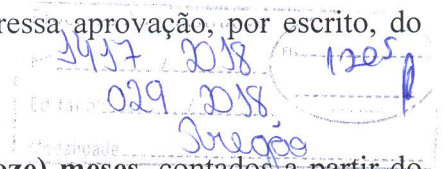 ressa aprovação, por escrito, do
1417 / 2018
Fls 1205
Edital 029 / 2018
Modalidade Pregão
oze) meses, contados a partir do